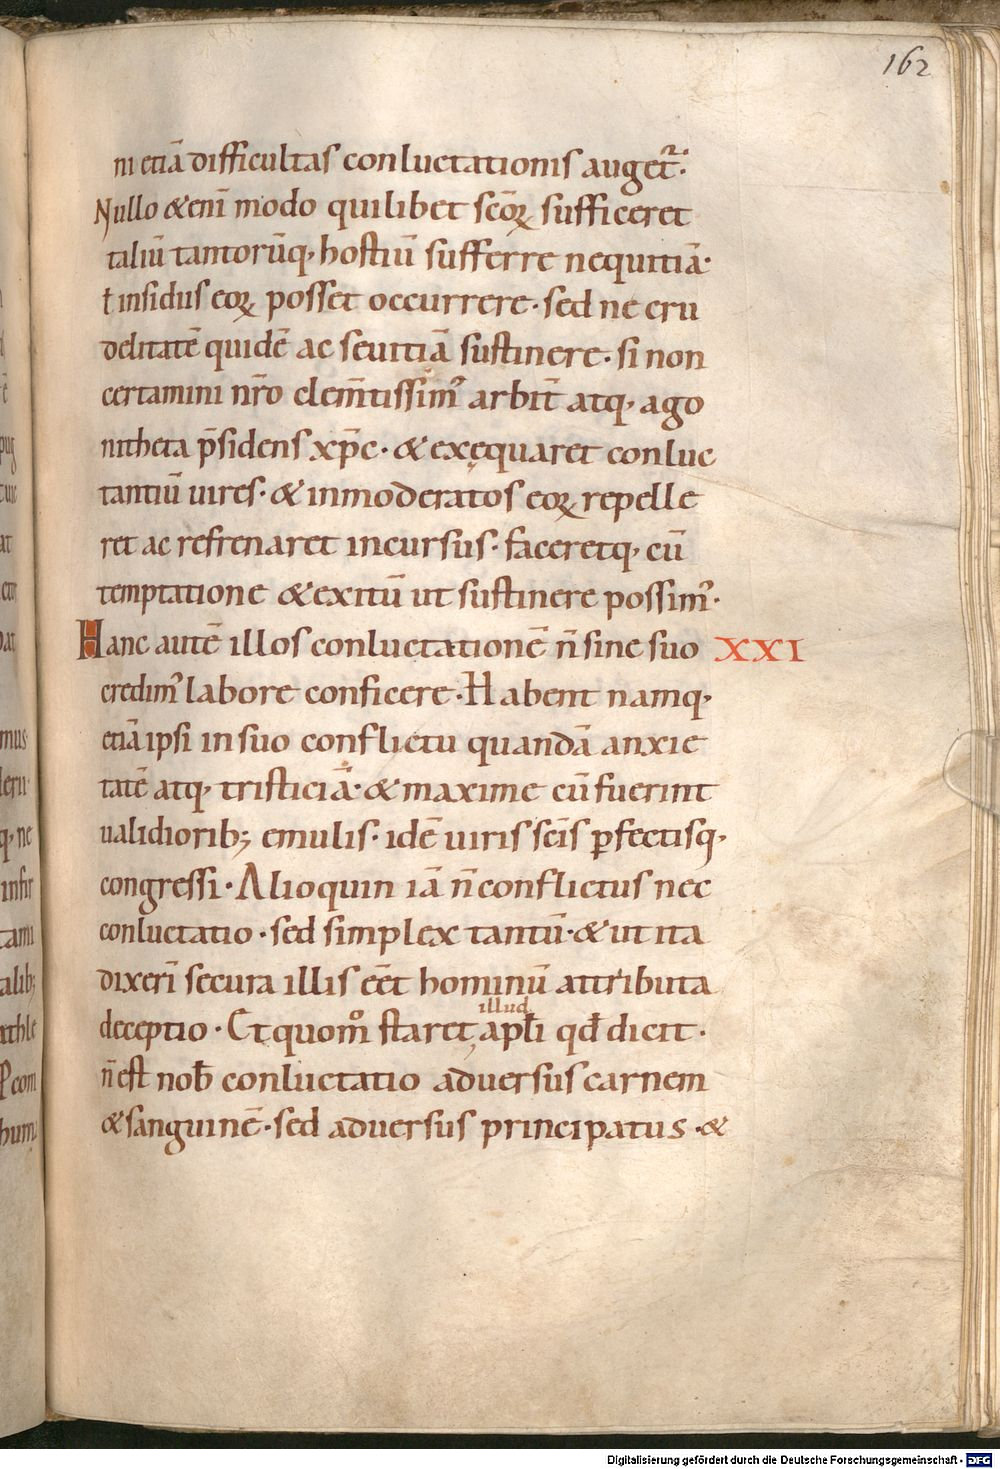 162
ni etiā difficultas conluctationis auget᷑.
Nullo &eni᷑ modo quilibet sc̄oꝝ sufficeret
taliū tantorūq· hostiū sufferre nequitiā·
ł insidiis eoꝝ posset occurrere· sed ne cru
delitatē quidē ac seuitiā sustinere· si non
certamini nr̄o clem̄tissim᷒ arbit̄ atq· ago
nitheta p̄sidens xp̄c· & exęquaret conluc
tantiū uires· & inmoderatos eoꝝ repelle
ret ac refrenaret incursus· faceretq· cū
temptatione & exitū ut sustinere possim᷒·
Hanc autē illos conluctationē n̄ sine suo XXI
credim᷒ labore conficere· Habent namq·
etiā ipsi in suo conflictu quandā anxie
tatē atq· tristiciā· & maxime cū fuerint
ualidiorib; emulis· idē uiris sc̄is ꝑfectisq·
congressi· Alioquin iā n̄ conflictus nec
conluctatio· sed simplex tantū· & ut ita
dixeri᷑ secura illis eēt hominū attributa
deceptio· Et quom̊ staret illud apłi qđ dicit·
n̄ est nob̄ conluctatio aduersus carnem
& sanguinē· sed aduersus principatus· &
mus·
q· ne
infir
tam
alib;
athle
Pcom
hum
Digitalisierung gefördert durch die Deutsche Forschungsgemeinschaft - DFG